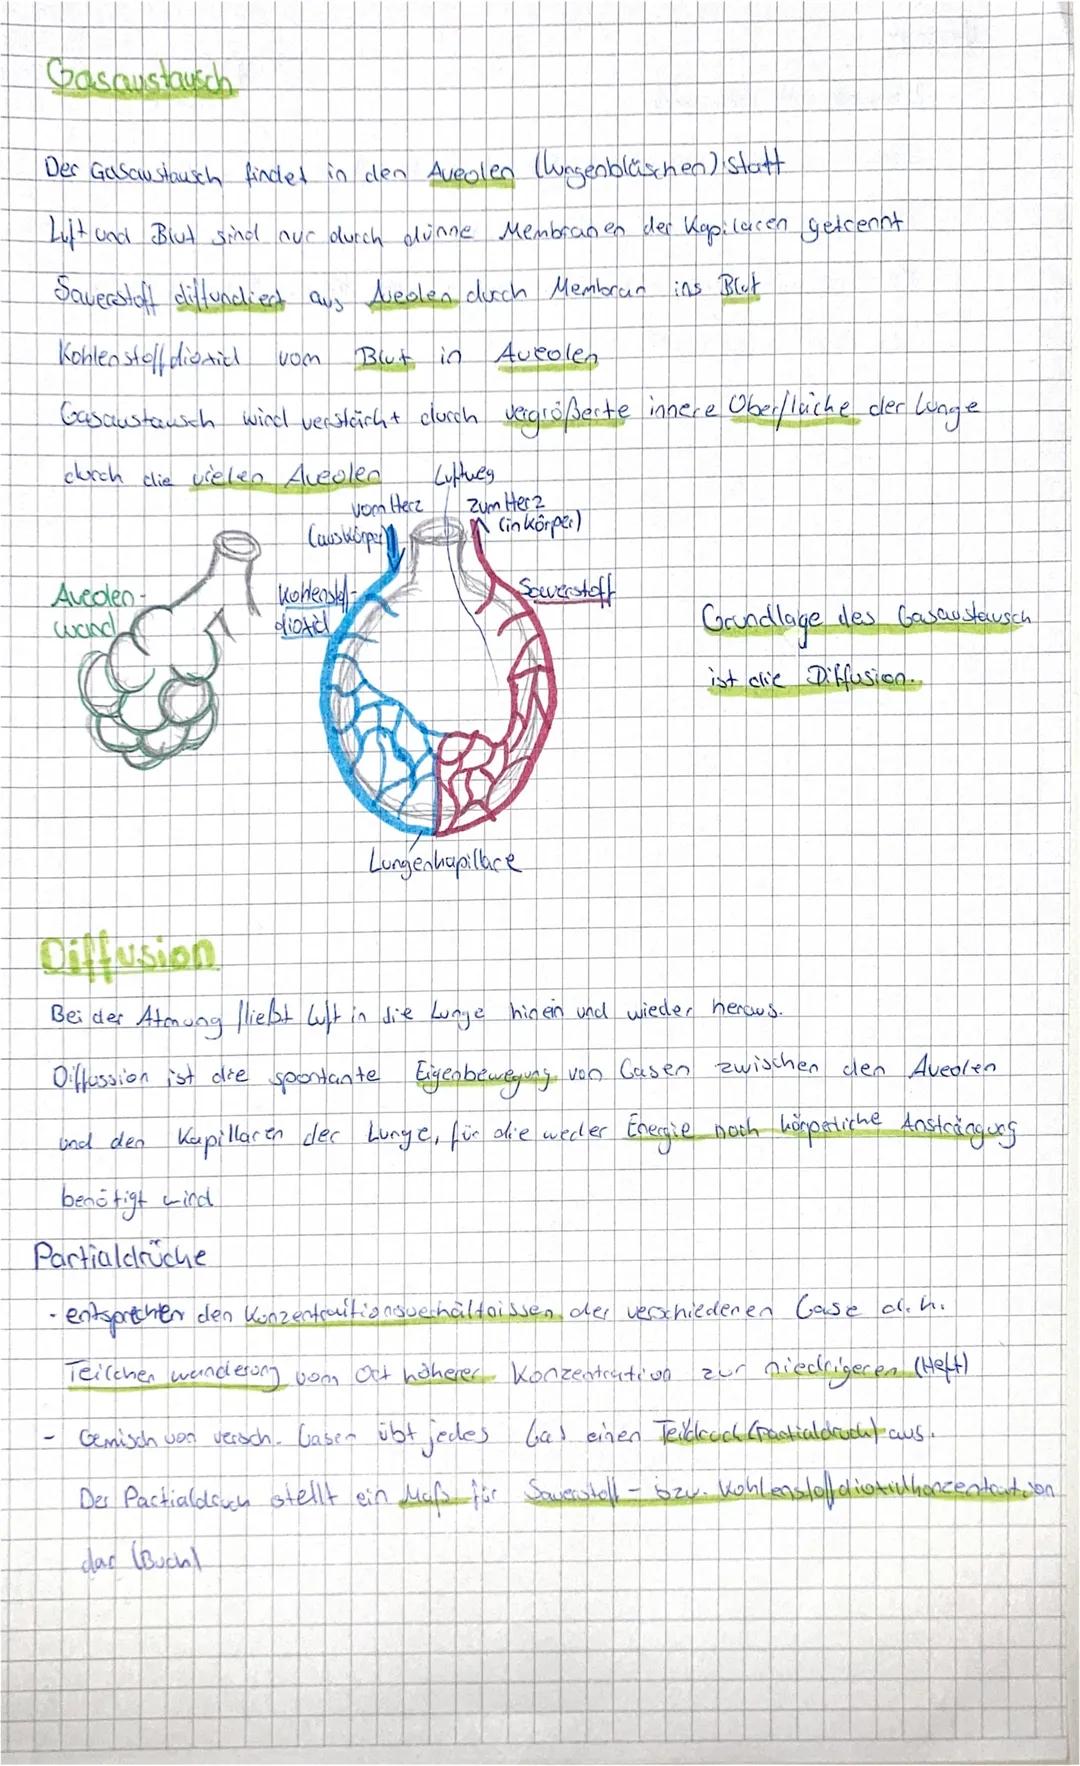 Gasaustausch
Der Gasaustausch findet in den Aveolen (Lungenbläschen) statt
Luft und Blut sind nur durch dünne Membranen der Kapilaren getrennt
Sauerstoff diffundiert aus Aveolen durch Membran ins Blut
Kohlenstoffdioxid vom Blut in Aveolen
Gasaustausch wird verstärkt durch vergrößerte innere Oberfläche der Lunge
durch die vielen Aveolen
Luftweg
vom Herz
(aus Körper)
zum Herz
(in körper)
Aveolen-
wand
Kohlenstoff-
dioxid
Sauerstoff
Grundlage des Gasaustausch
ist die Diffusion.
Lungenkapillare
Diffusion
Bei der Atmung fließt Luft in die Lunge hinein und wieder heraus.
Diffussion ist die spontante Eigenbewegung von Gasen zwischen den Aveolen
und den Kapillaren der Lunge, für die weder Energie noch körperliche Ansträngung
benötigt wird
Partialdrücke
- entsprechen den Konzentraitionsverhältnissen der verschiedenen Gase d.h.
Teilchen wanderung vom Ort höherer Konzentration zur niedrigeren (Heft)
- Gemisch von versch. Gasen übt jedes Gas einen Teildruck (Partialdruck) aus.
Der Partialdruck stellt ein Maß für Sauerstoff- bzw. Kohlenstoffdioxidkonzentration
dar (Buch)